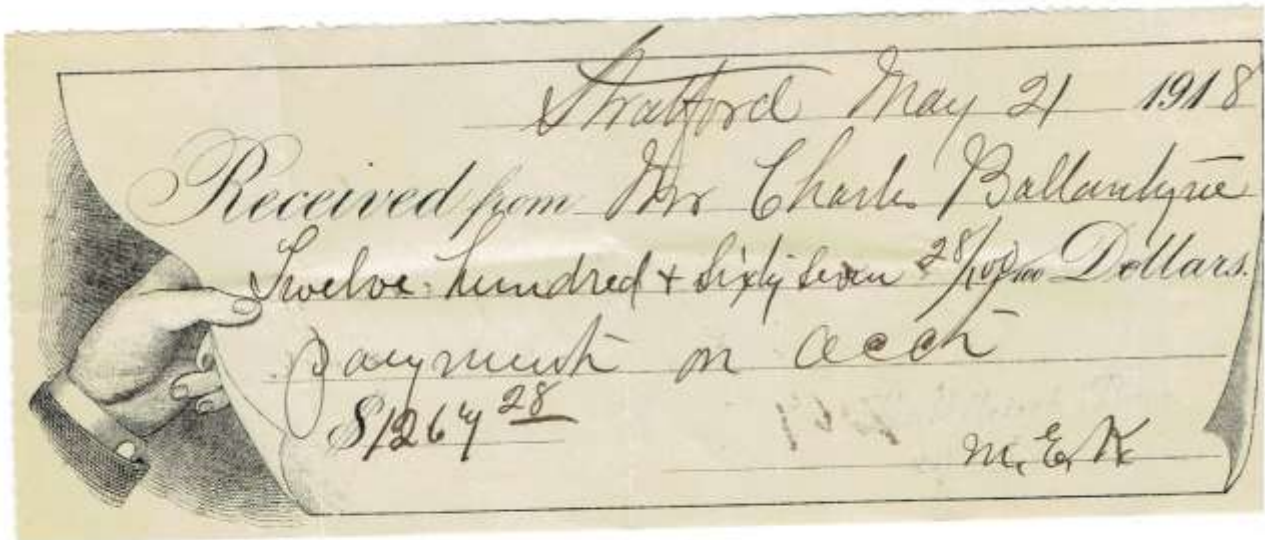 Stratford May 21 1918
Received from Mr Charles Ballantyne
Twelve hundred + sixty seven 28/100 Dollars.
payment on acct
$1267 28
M.E.K